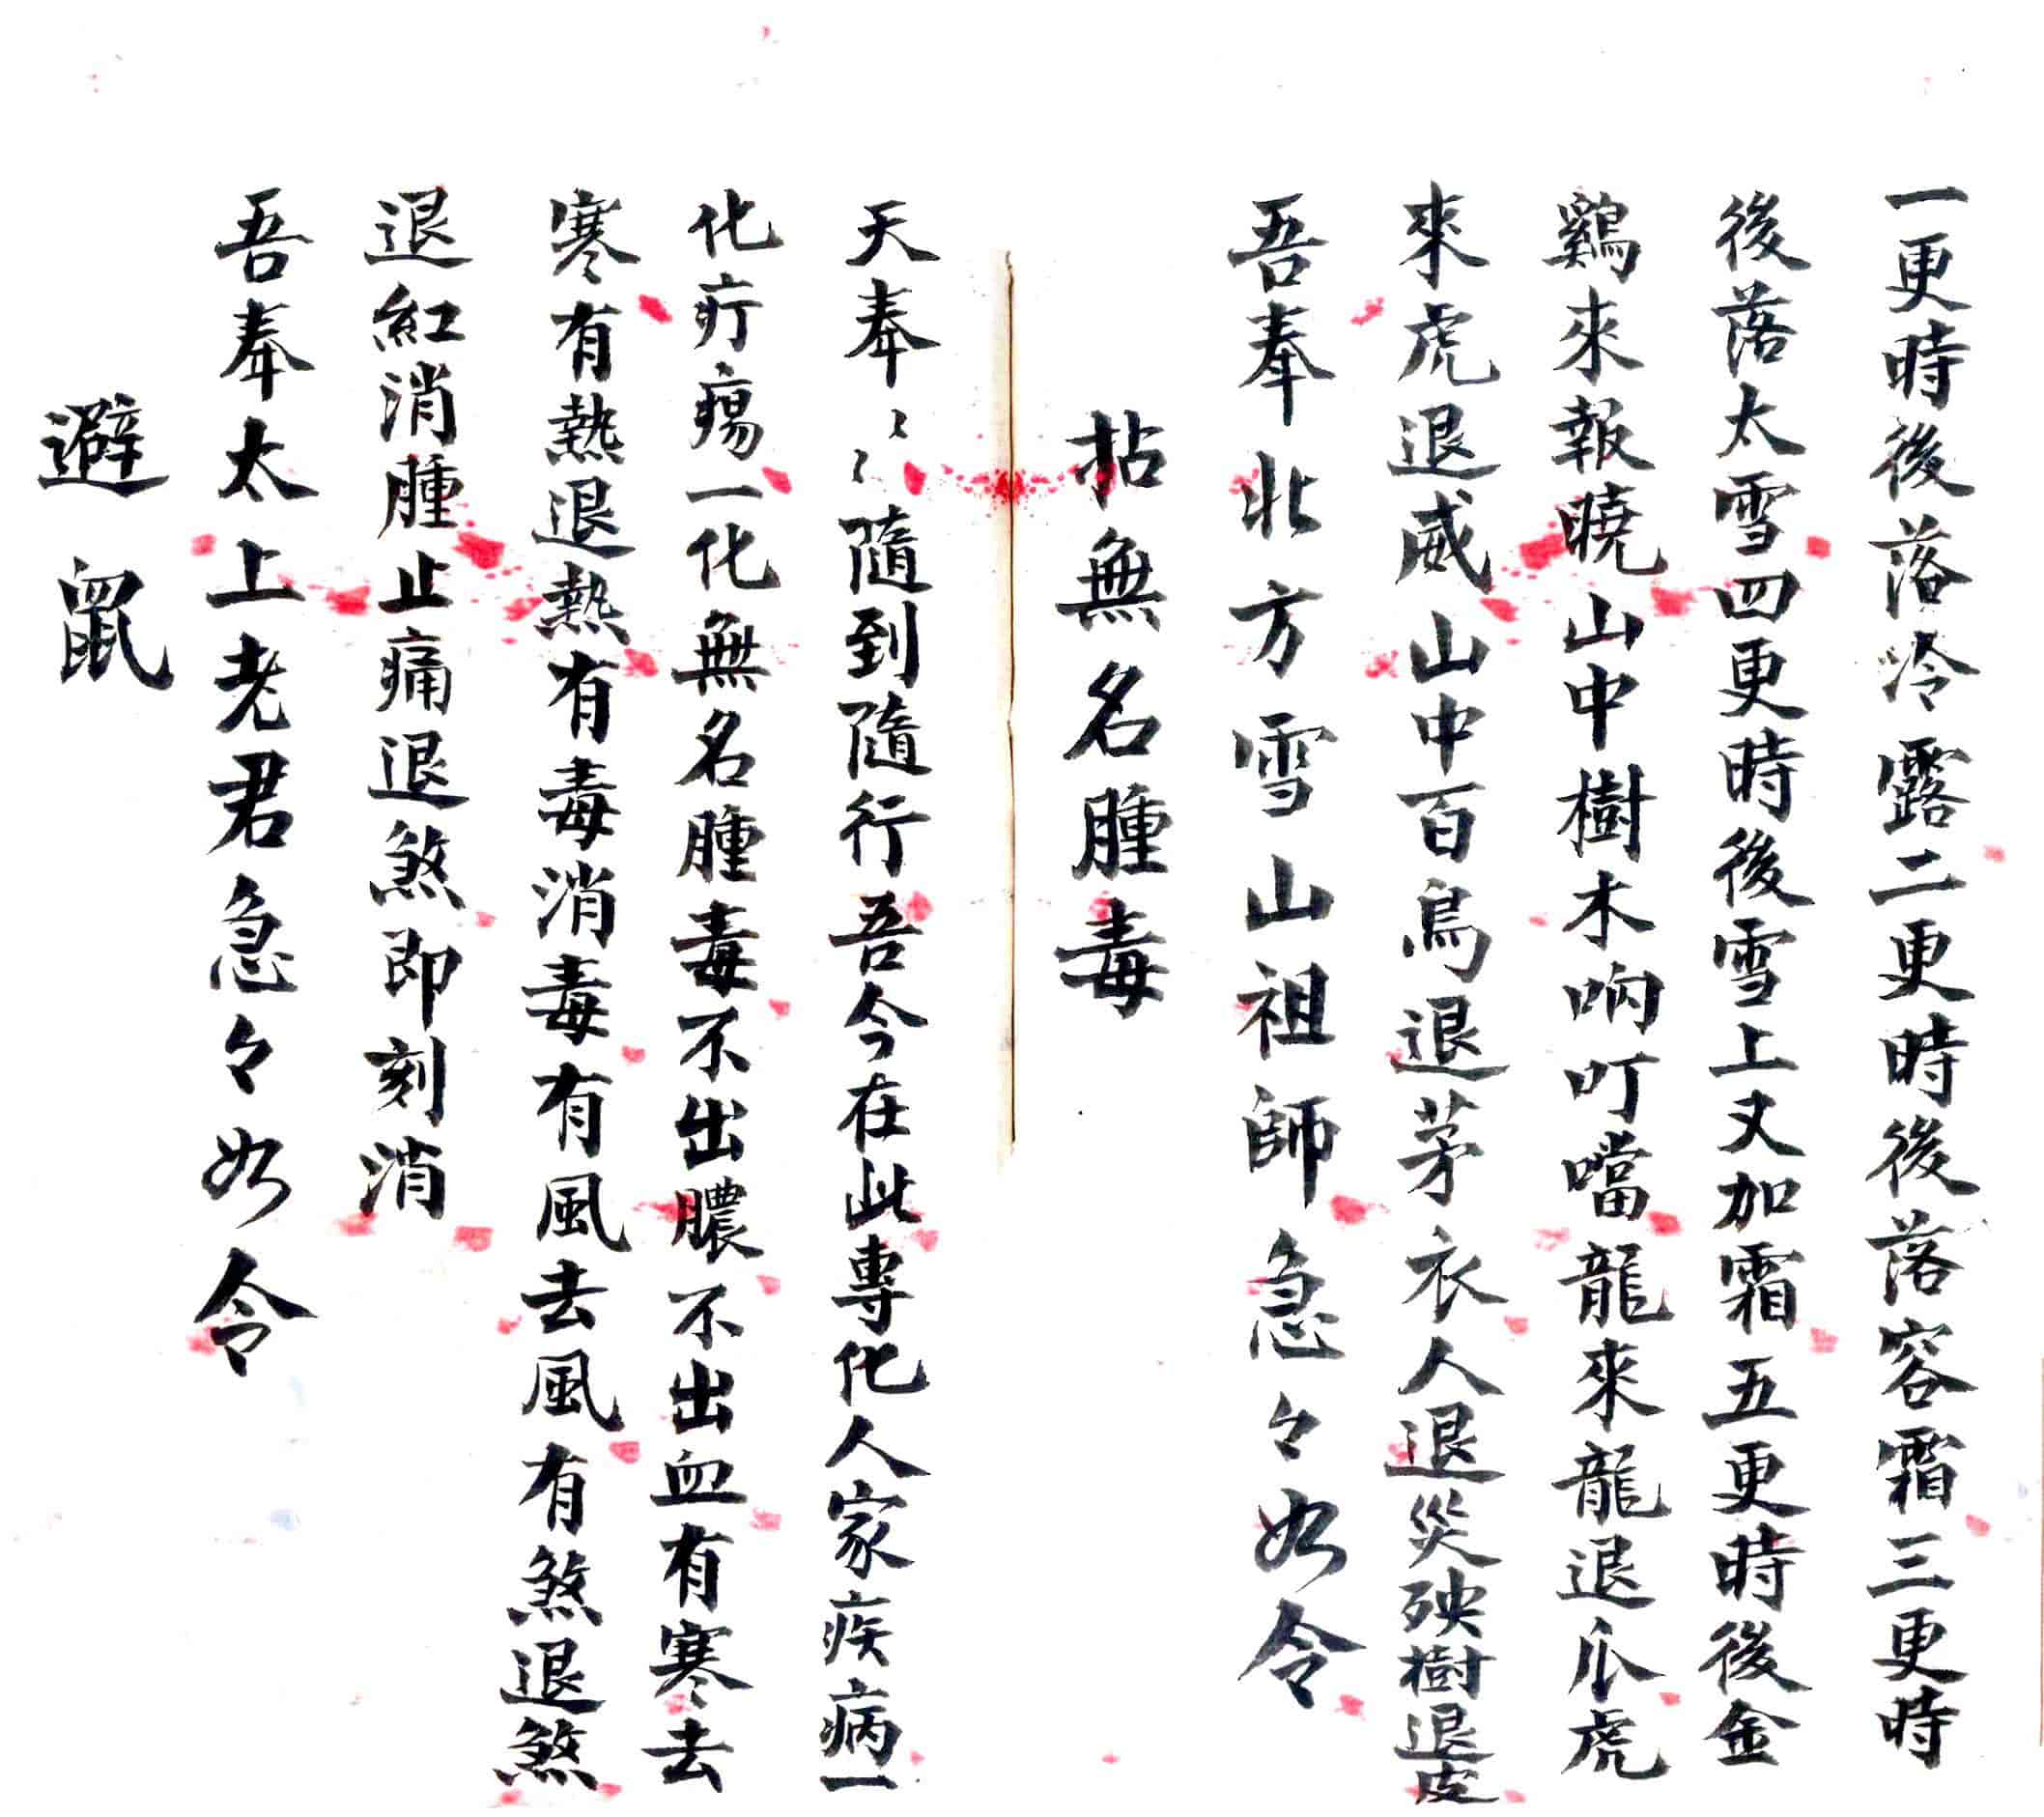 一更時後落冷露二更時後落容霜三更時
後落太雪四更時後雪上丈加霜五更時後金
鷄來報曉山中樹木响叮噹龍來龍退爪虎
來虎退威山中百鳥退茅衣人退災殃樹退皮
吾奉北方雪山祖師急々如令
拈無名腫毒
天奉〻〻隨到隨行吾今在此專化人家疾病一
化疔瘍一化無名腫毒不出膿不出血有寒去
寒有熱退熱有毒消毒有風去風有煞退煞
退紅消腫止痛退煞即刻消
吾奉太上老君急々如令
避鼠